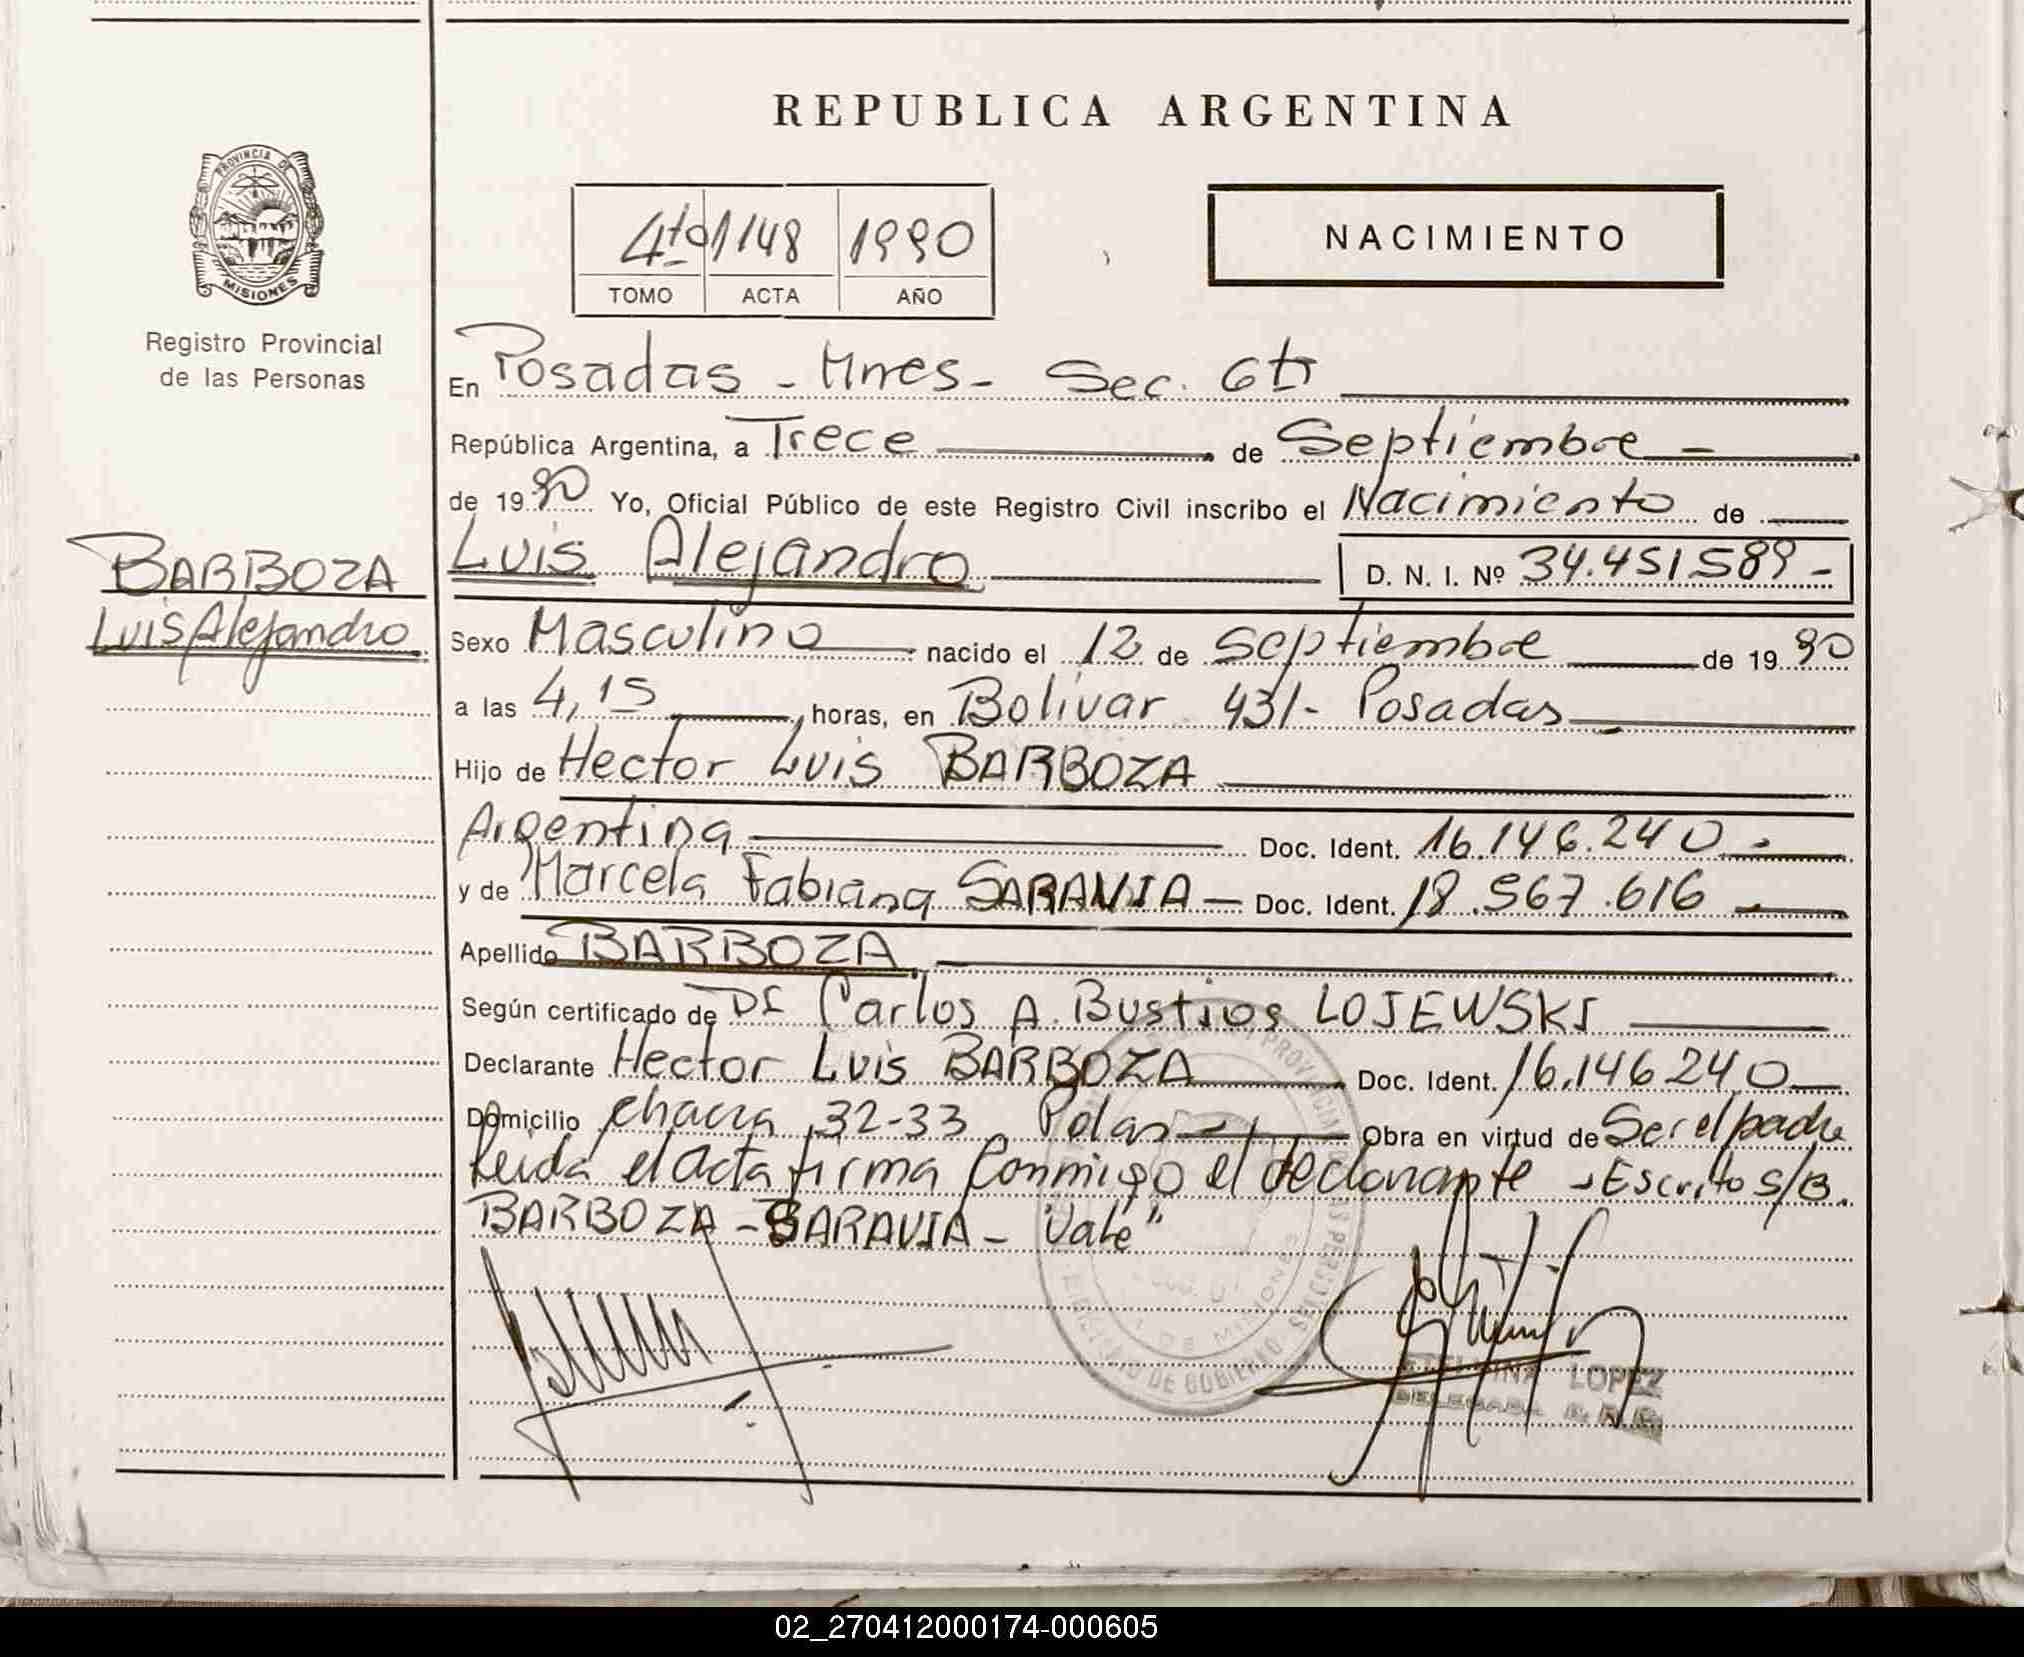 REPUBLICA ARGENTINA
PROVINCIA DE
MISIONES
Registro Provincial
de las Personas
4to 1148 1990
TOMO ACTA AÑO
NACIMIENTO
En Posadas - Mnes - Sec. 6ta
República Argentina, a Trece de Septiembre -
de 1990 Yo, Oficial Público de este Registro Civil inscribo el Nacimiento de
BARBOZA
Luis Alejandro
Luis Alejandro D. N. I. Nº 34.451589 -
Sexo Masculino nacido el 12 de Septiembre de 1990
a las 4,15 horas, en Bolivar 431 - Posadas
Hijo de Hector Luis BARBOZA
Argentina Doc. Ident. 16.146.240 -
y de Marcela Fabiana SARAVIA - Doc. Ident. 18.567.616 -
Apellido BARBOZA
Según certificado de Dr Carlos A. Bustios LOJEWSKI
Declarante Hector Luis BARBOZA Doc. Ident. 16.146240
Domicilio chacra 32-33 Pdas Obra en virtud de Ser el padre
Leida el acta firma conmigo el declarante - Escrito S/B.
BARBOZA - SARAVIA - Vale"
LOPEZ
DELEGADA
02_270412000174-000605